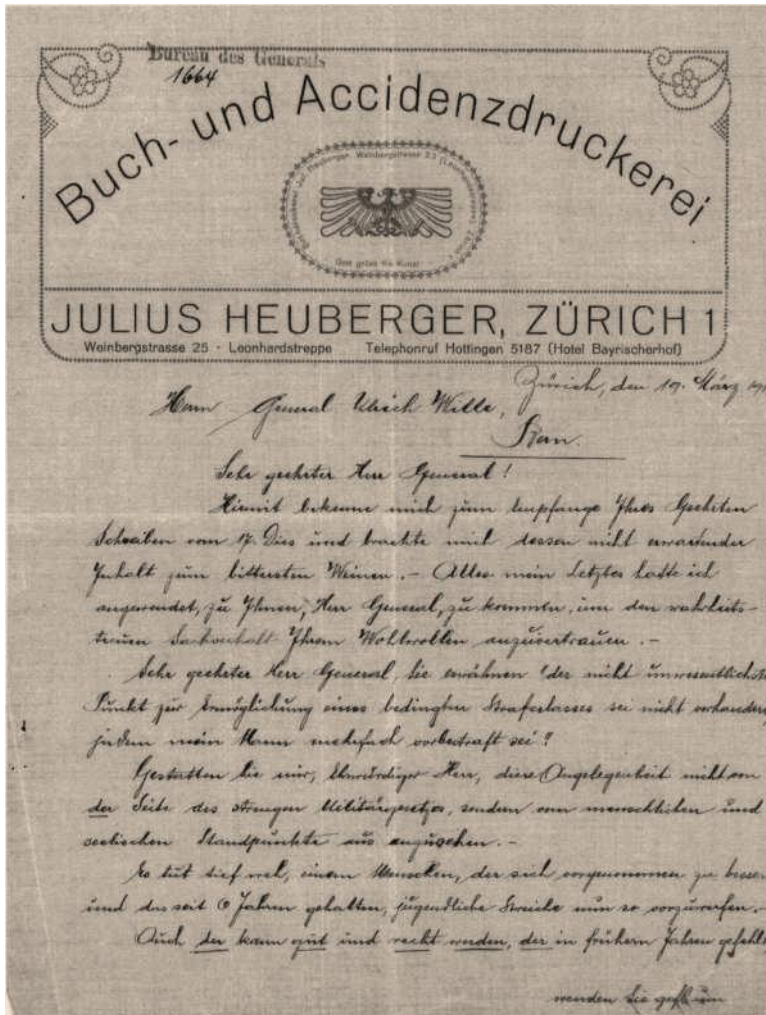 Bureau des Generals
1664
Buch- und Accidenzdruckerei
Gott grüss die Kunst
JULIUS HEUBERGER, ZÜRICH 1
Weinbergstrasse 25 - Leonhardstreppe Telephonruf Hottingen 5187 (Hotel Bayrischerhof)
Zürich, den 19. März
Herrn General Ulrich Wille,
Bern.
Sehr geehrter Herr General!
Hiemit bekenne mich zum Empfange Ihres Geehrten
Schreiben vom 17. Dies und brachte mich dessen nicht erwartender
Inhalt zum bittersten Weinen. - Alles mein Letztes hatte ich
angewendet, zu Ihnen, Herr General, zu kommen, um den wahrheits-
treuen Sachverhalt Ihrem Wohlwollen anzuvertrauen. -
Sehr geehrter Herr General, Sie erwähnen "der nicht unwesentlichste
Punkt zur Ermöglichung eines bedingten Straferlasses sei nicht vorhanden,
indem mein Mann mehrfach vorbestraft sei"
Gestatten Sie mir, Ehrwürdiger Herr, diese Angelegenheit nicht von
der Seite des strengen Militärgesetzes, sondern vom menschlichen und
seelischen Standpunkte aus anzusehen. -
Es tut tief weh, einem Menschen, der sich vorgenommen zu bessern
und das seit 6 Jahren gehalten, jugendliche Streiche nun so vorzuwerfen. -
Auch der kann gut und recht werden, der in frühern Jahren gefehlt,
wenden Sie gefl. um